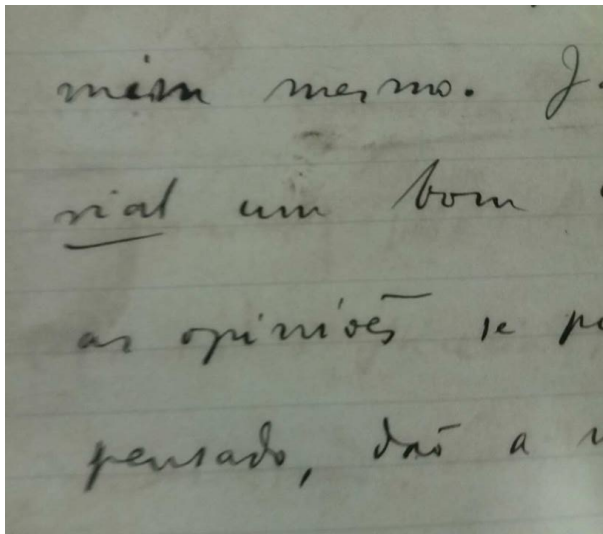 mim mesmo. J
rial um bom
as opiniões se
pensado, dão a